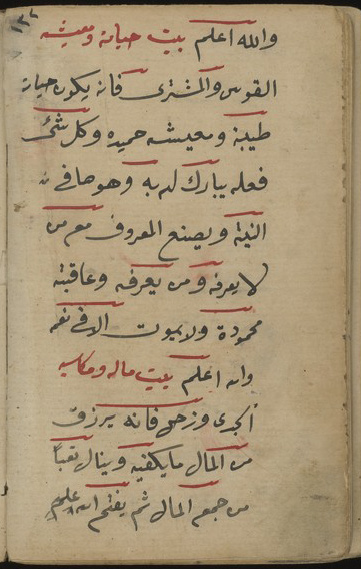 ١٣٢
والله اعلم بيت حياته ومعيشته
القوس والمشترى فانه يكون حياته
طيبة ومعيشه حميده وكل شئ
فعله يبارك له به وهو صافى
النية ويصنع المعروف مع من
لا يعرفه ومن يعرفه وعاقبته
محمودة ولا يموت الا فى نعمه
والله اعلم بيت ماله ومكاسبه
الجدى وزحل فانه يرزق
من المال ما يكفيه وينال تعباً
من جمع المال ثم يغتم الله اعلم